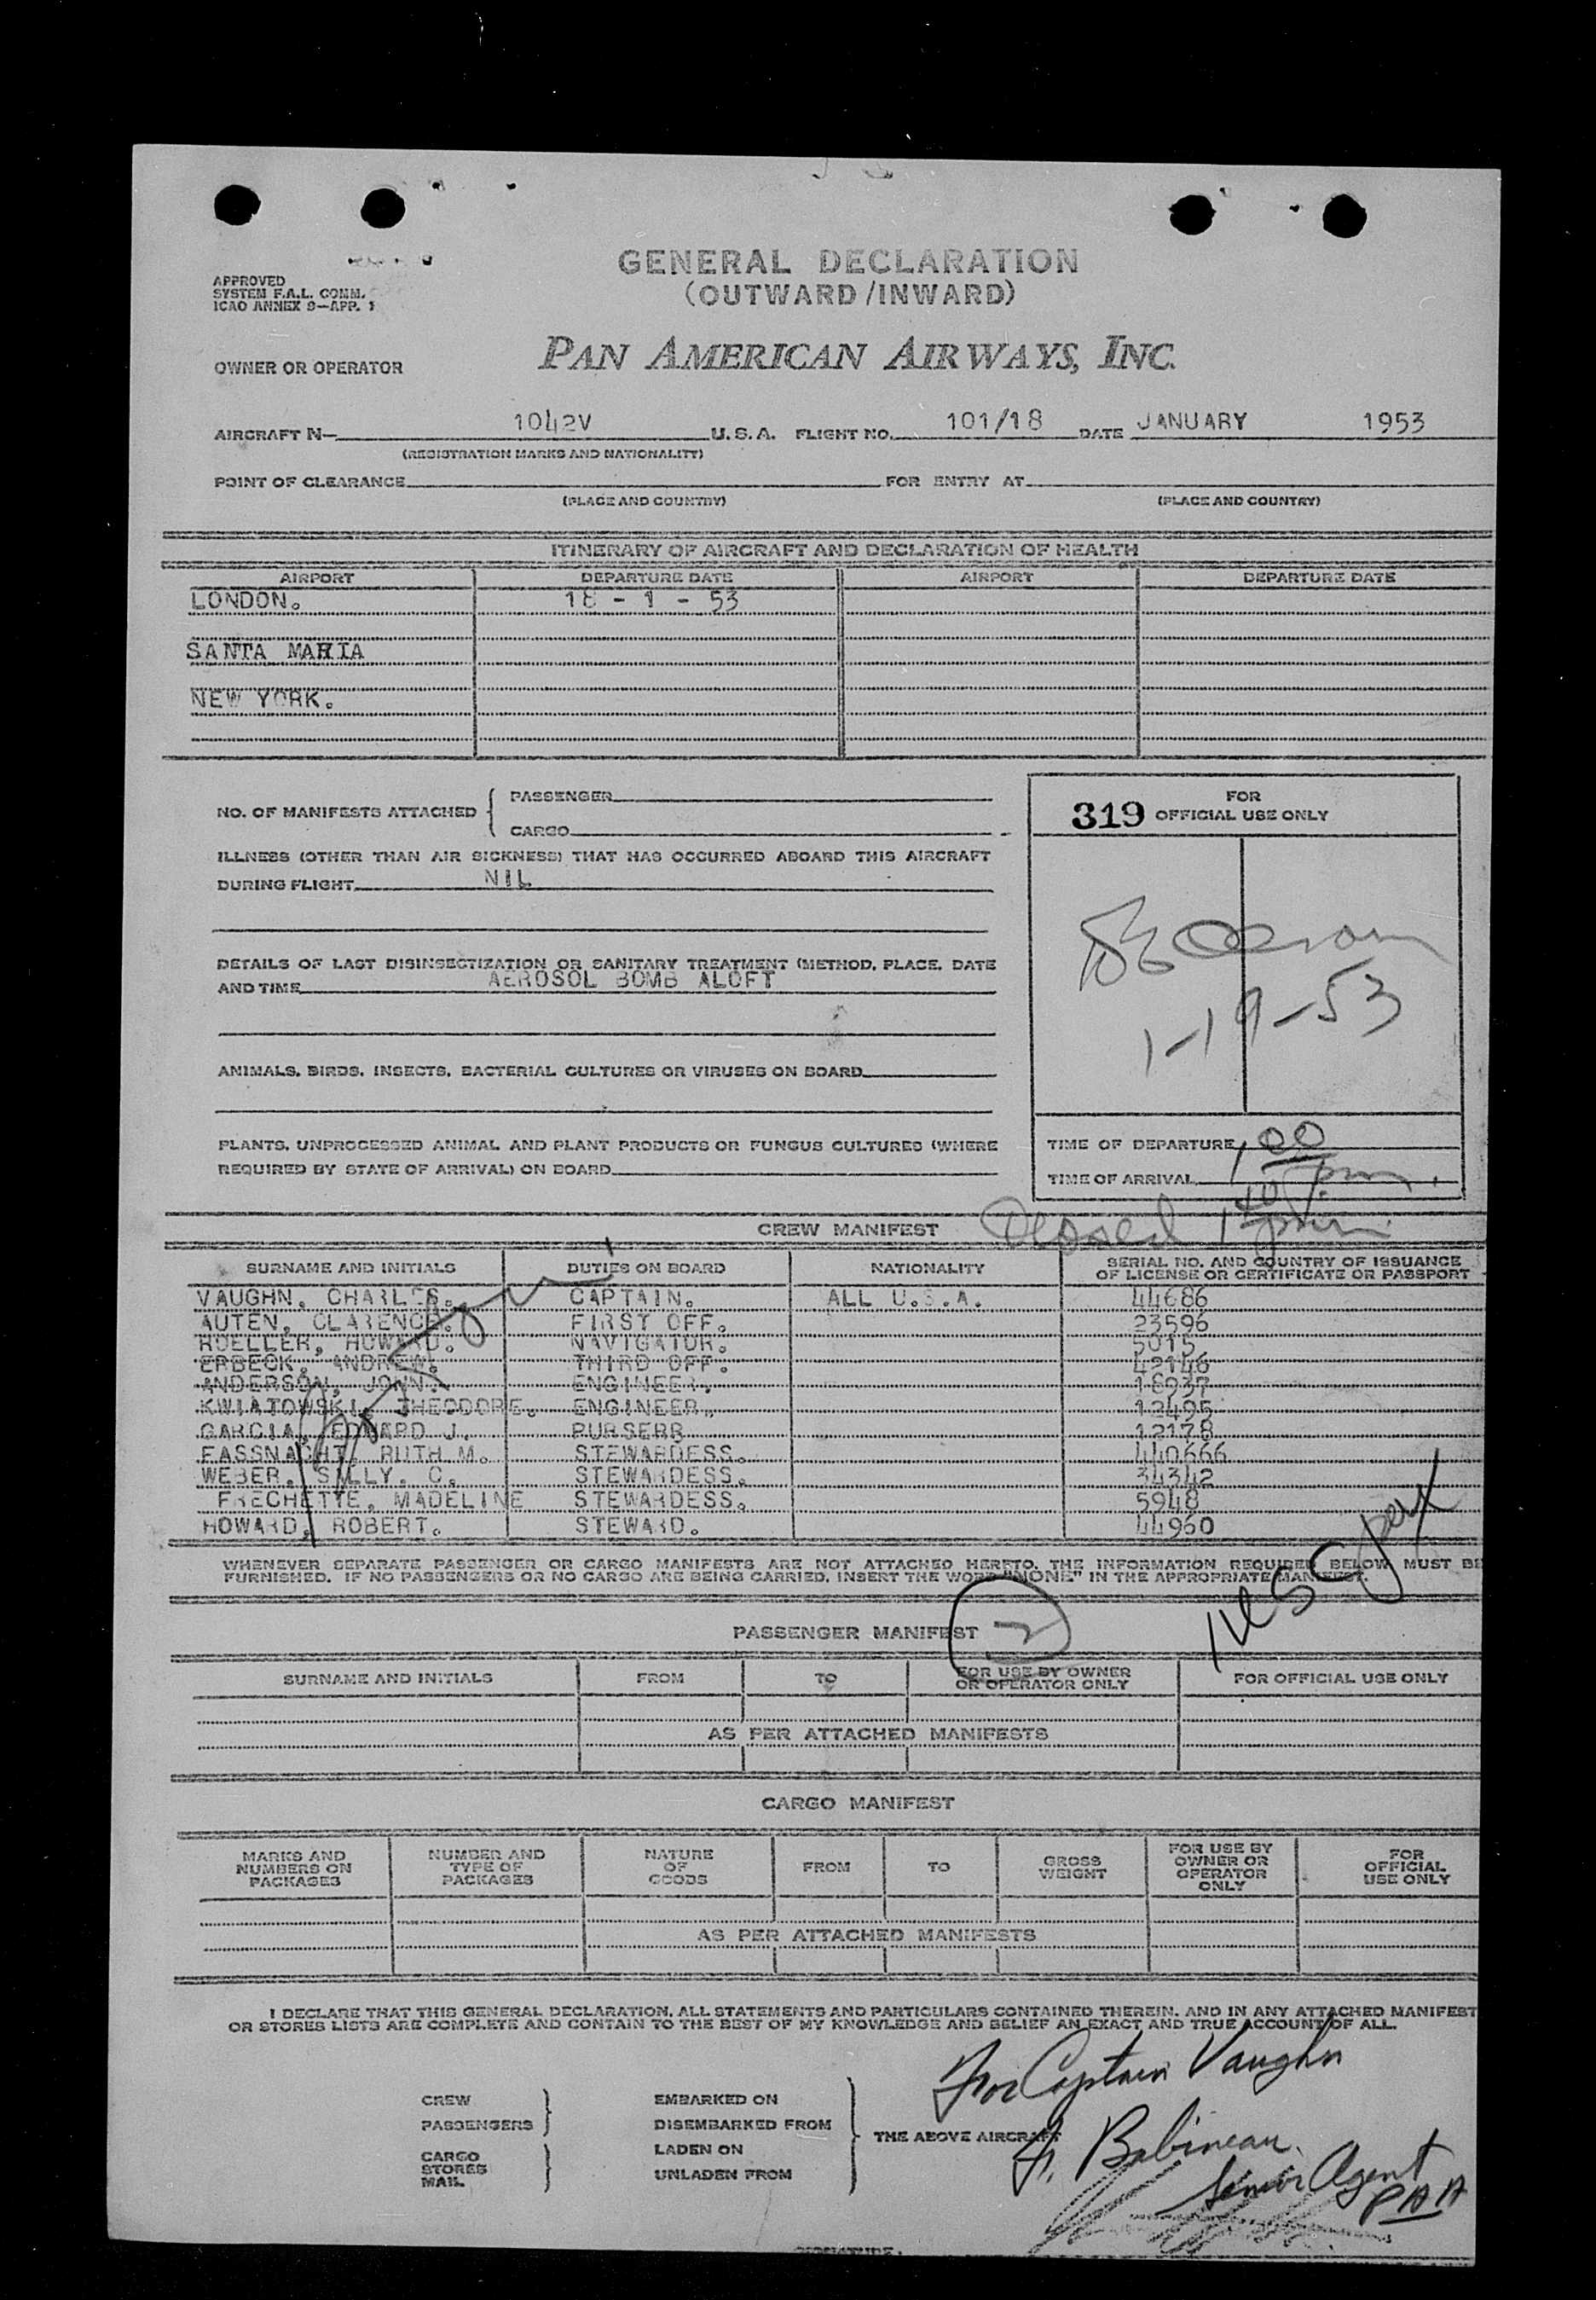 GENERAL DECLARATION
(OUTWARD/INWARD)
APPROVED
SYSTEM F.A.L. COMM.
ICAO ANNEX 9—APP. 1
OWNER OR OPERATOR PAN AMERICAN AIRWAYS, INC.
AIRCRAFT N— 1042V U.S.A. FLIGHT NO. 101/18 DATE JANUARY 1953
(REGISTRATION MARKS AND NATIONALITY)
POINT OF CLEARANCE FOR ENTRY AT
(PLACE AND COUNTRY) (PLACE AND COUNTRY)
ITINERARY OF AIRCRAFT AND DECLARATION OF HEALTH
AIRPORT DEPARTURE DATE AIRPORT DEPARTURE DATE
LONDON. 18 - 1 - 53
SANTA MARIA
NEW YORK.
NO. OF MANIFESTS ATTACHED { PASSENGER
CARGO
FOR
319 OFFICIAL USE ONLY
ILLNESS (OTHER THAN AIR SICKNESS) THAT HAS OCCURRED ABOARD THIS AIRCRAFT
DURING FLIGHT NIL
DETAILS OF LAST DISINSECTIZATION OR SANITARY TREATMENT (METHOD, PLACE, DATE
AND TIME AEROSOL BOMB ALOFT
1-19-53
ANIMALS, BIRDS, INSECTS, BACTERIAL CULTURES OR VIRUSES ON BOARD
PLANTS, UNPROCESSED ANIMAL AND PLANT PRODUCTS OR FUNGUS CULTURES (WHERE
REQUIRED BY STATE OF ARRIVAL) ON BOARD
TIME OF DEPARTURE 1 00
TIME OF ARRIVAL pm.
CREW MANIFEST 1 40 pm.
SURNAME AND INITIALS DUTIES ON BOARD NATIONALITY SERIAL NO. AND COUNTRY OF ISSUANCE
OF LICENSE OR CERTIFICATE OR PASSPORT
VAUGHN, CHARLES. CAPTAIN. ALL U.S.A. 44686
AUTEN, CLARENCE. FIRST OFF. 23596
ROELLER, HOWARD. NAVIGATOR. 5015
ERBECK, ANDREW. THIRD OFF. 42146
ANDERSON, JOHN. ENGINEER. 18937
KWIATOWSKI, THEODORE. ENGINEER. 12495
GARCIA, EDWARD J. PURSERR 12178
FASSNACHT, RUTH M. STEWARDESS. 440666
WEBER, SALLY. C. STEWARDESS. 34342
FRECHETTE, MADELINE STEWARDESS. 5948
HOWARD, ROBERT. STEWARD. 44960
WHENEVER SEPARATE PASSENGER OR CARGO MANIFESTS ARE NOT ATTACHED HERETO, THE INFORMATION REQUIRED BELOW MUST BE
FURNISHED. IF NO PASSENGERS OR NO CARGO ARE BEING CARRIED, INSERT THE WORD "NONE" IN THE APPROPRIATE MANIFEST.
PASSENGER MANIFEST
SURNAME AND INITIALS FROM TO FOR USE BY OWNER
OR OPERATOR ONLY FOR OFFICIAL USE ONLY
AS PER ATTACHED MANIFESTS
CARGO MANIFEST
MARKS AND
NUMBERS ON
PACKAGES NUMBER AND
TYPE OF
PACKAGES NATURE
OF
GOODS FROM TO GROSS
WEIGHT FOR USE BY
OWNER OR
OPERATOR
ONLY FOR
OFFICIAL
USE ONLY
AS PER ATTACHED MANIFESTS
I DECLARE THAT THIS GENERAL DECLARATION, ALL STATEMENTS AND PARTICULARS CONTAINED THEREIN, AND IN ANY ATTACHED MANIFEST
OR STORES LISTS ARE COMPLETE AND CONTAIN TO THE BEST OF MY KNOWLEDGE AND BELIEF AN EXACT AND TRUE ACCOUNT OF ALL.
For Captain Vaughn
CREW
PASSENGERS }
CARGO
STORES
MAIL }
EMBARKED ON
DISEMBARKED FROM
LADEN ON
UNLADEN FROM } THE ABOVE AIRCRAFT
Babineau.
Senior Agent
PAA
SIGNATURE.